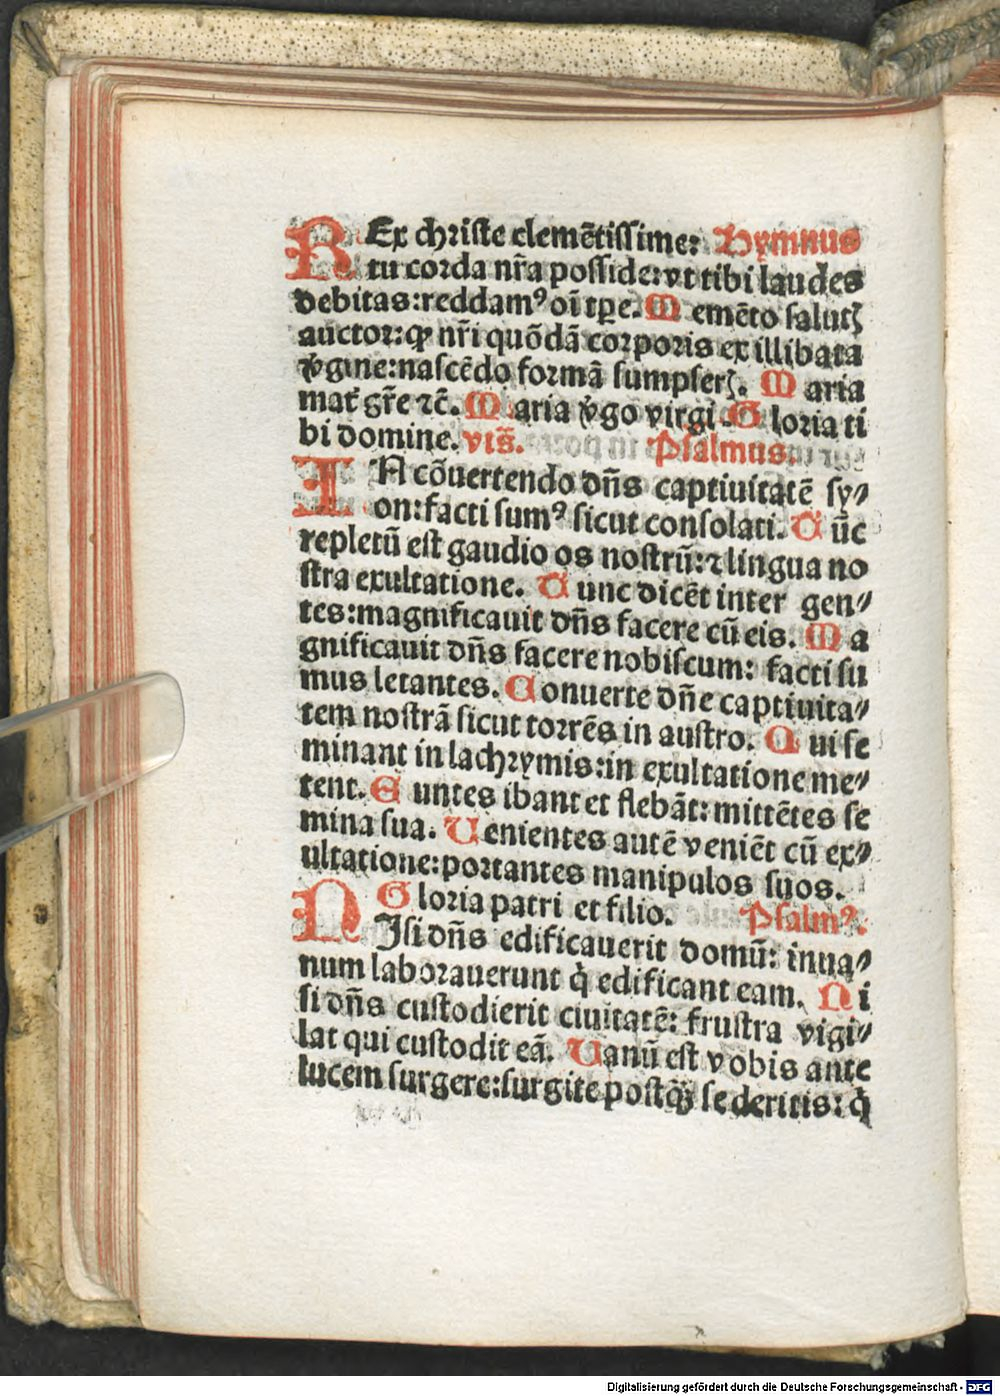 REx christe clemẽtissime: Hymnus
tu corda nr̃a posside: vt tibi laudes
debitas: reddamꝰ oĩ tp̲e. Memẽto salutꝫ
auctor: ꝙ nr̃i quõdã corporis ex illibata
v̾gine: nascẽdo formã sumpserꝭ. Maria
mat̾ gr̃e ⁊c̃. Maria v̾go virgi. Gloria ti
bi domine. vts̃. Psalmus.
IN cõuertendo dñs captiuitatẽ sy⸗
on: facti sumꝰ sicut consolati. Tũc
repletũ est gaudio os nostrũ: ⁊ lingua no
stra exultatione. Tunc dicẽt inter gen⸗
tes: magnificauit dñs facere cũ eis. Ma
gnificauit dñs facere nobiscum: facti su
mus letantes. Conuerte dñe captiuita⸗
tem nostrã sicut torrẽs in austro. Qui se
minant in lachrymis: in exultatione me⸗
tent. Euntes ibant et flebãt: mittẽtes se
mina sua. Uenientes autẽ veniẽt cũ ex⸗
ultatione: portantes manipulos suos.
Gloria patri et filio. Psalmꝰ.
NIsi dñs edificauerit domũ: inua⸗
num laborauerunt q̇ edificant eam. Ni
si dñs custodierit ciuitatẽ: frustra vigi⸗
lat qui custodit eã. Uanũ est vobis ante
lucem surgere: surgite postꝙ̃ sederitis: q̇
Digitalisierung gefördert durch die Deutsche Forschungsgemeinschaft - DFG